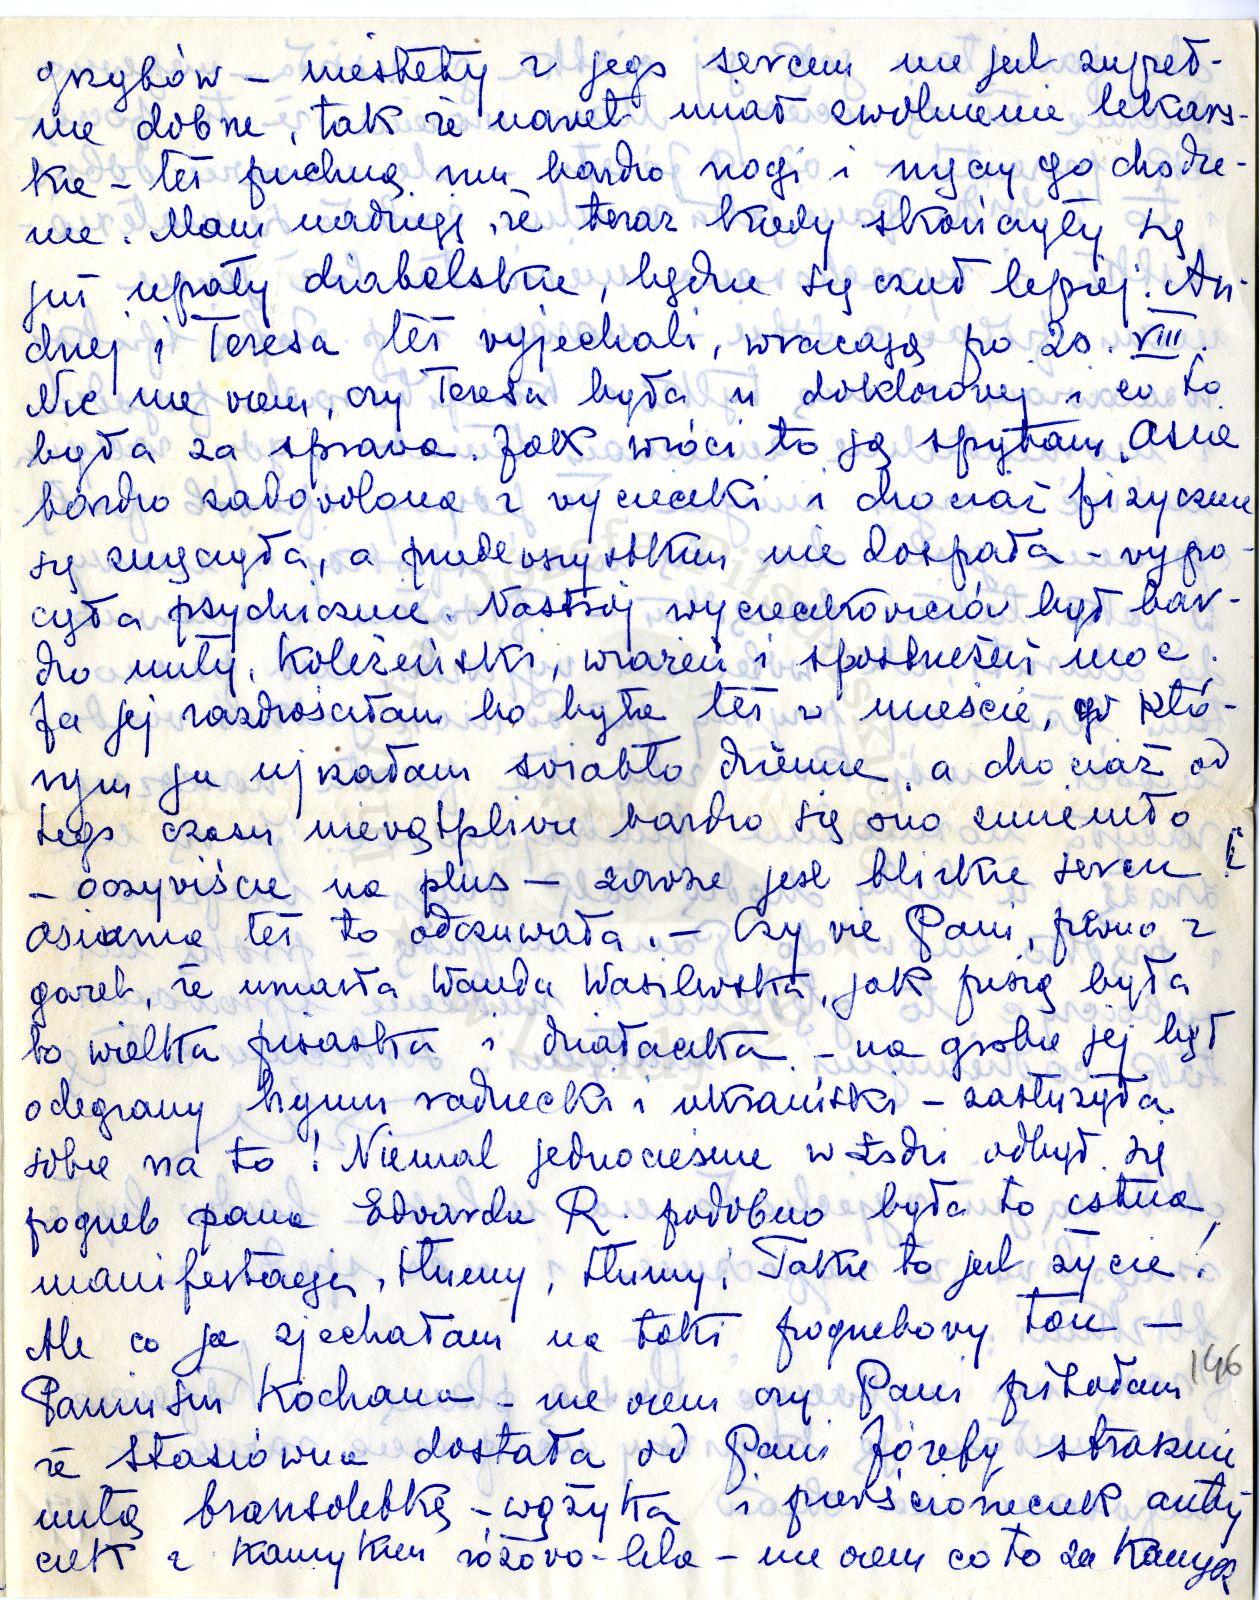 grzybów – niestety z jego sercem nie jest zupeł-
nie dobrze, tak że nawet miał zwolnienie lekars-
kie – też puchną mu bardzo nogi i męczy go chodze-
nie. Mam nadzieję, że teraz kiedy skończyły się
już upały diabelskie, będzie się czuł lepiej. An-
drzej i Teresa też wyjechali, wracają po 20. VIII.
Nic nie wiem, czy Teresa była u doktorowej i co to
była za sprawa. Jak wróci to ją spytam. Asia
bardzo zadowolona z wycieczki i chociaż fizycznie
się zmęczyła, a przede wszystkim nie dospała – wypo-
częła psychicznie. Nastrój wycieczkowiczów był bar-
dzo miły, koleżeński, wrażeń i spostrzeżeń moc.
Ja jej zazdrościłam bo była też w mieście, w któ-
rym ja ujrzałam światło dzienne a chociaż od
tego czasu niewątpliwie bardzo się ono zmieniło
– oczywiście na plus – zawsze jest bliskie sercu i
Asiunia też to odczuwała. – Czy wie Pani, pewno z
gazet, że umarła Wanda Wasilewska, jak piszą była
to wielka pisarka i działaczka – na grobie jej był
odegrany hymn radziecki i ukraiński – zasłużyła
sobie na to! Niemal jednocześnie w Łodzi odbył się
pogrzeb pana Edwarda R. podobno była to istna
manifestacja, tłumy, tłumy! Takie to jest życie!
Ale co ja zjechałam na taki pogrzebowy ton –
Paniusiu Kochana – nie wiem czy Pani pisałam 146
że Stasiówna dostała od Pani Józefy strasznie
miłą bransoletkę – wężyka i pierścioneczek anty
czek z kamykiem różowo-lila – nie wiem co to za kamyk